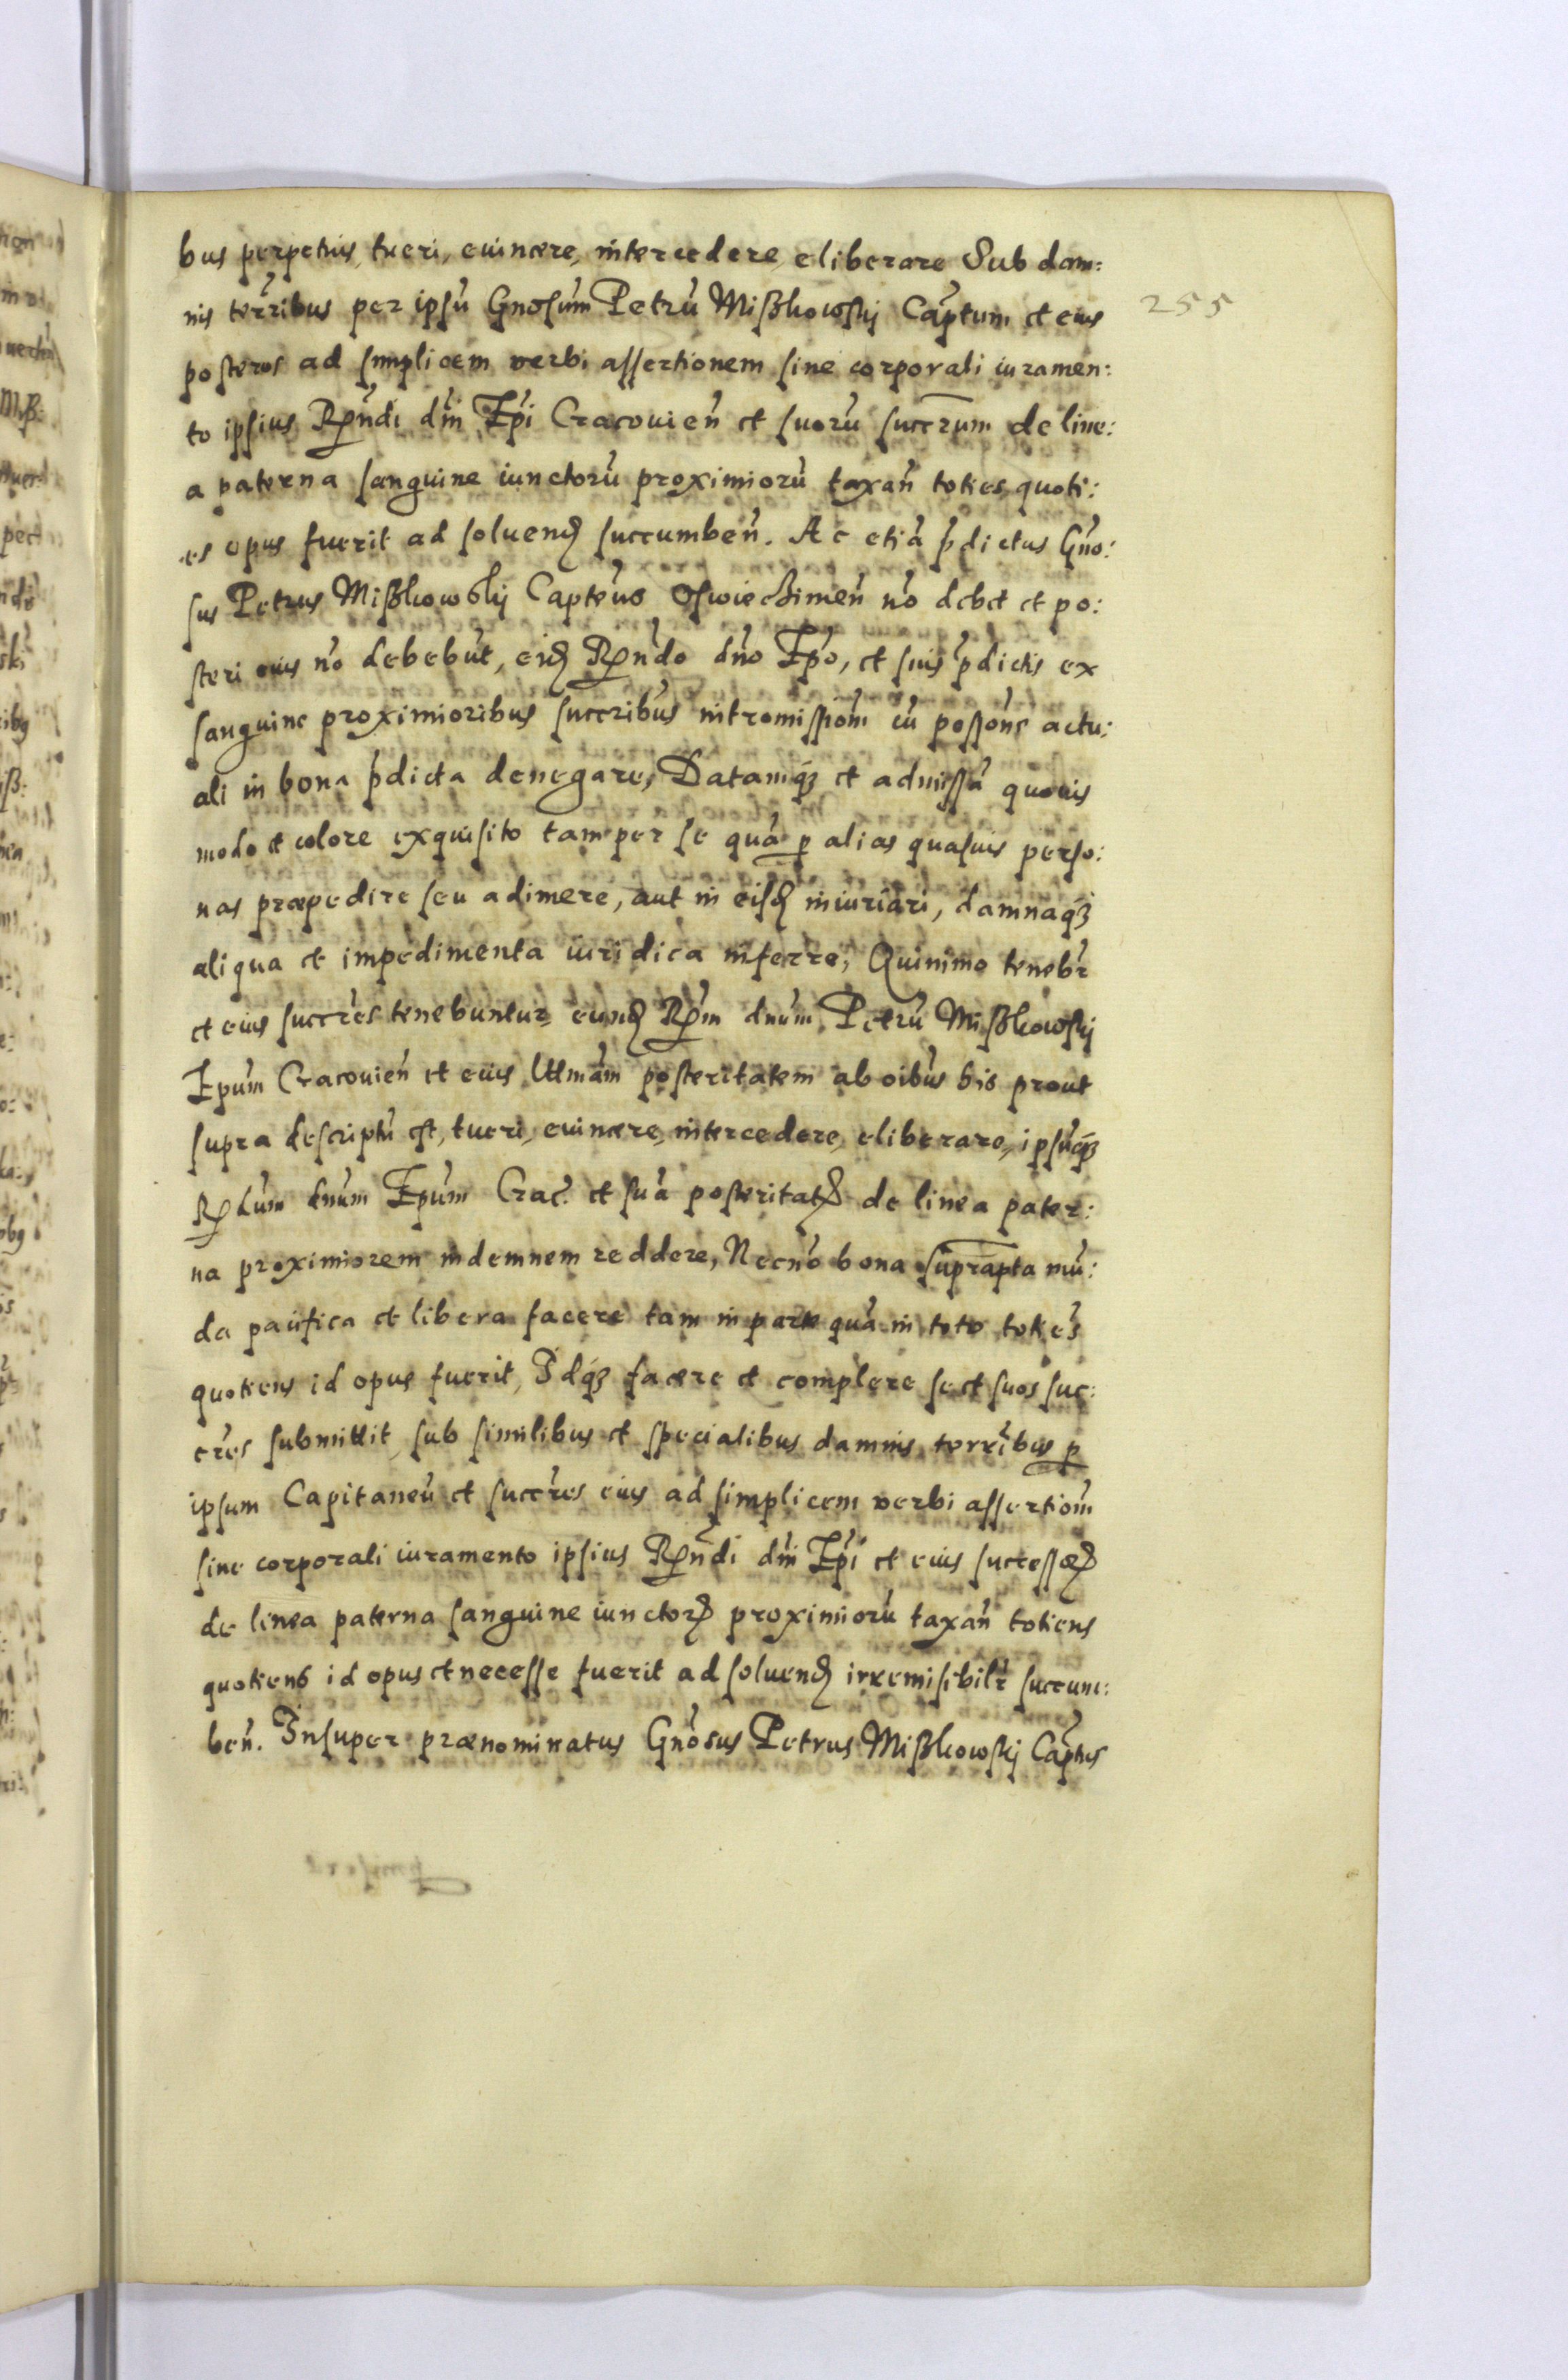 bus perpetuis, tueri, euincere, intercedere, eliberare Sub dam:
nis terrībus per ipsū Gnosūm Petrū Mißkowskij Cāptum et eius
255
posteros ad simplicem verbi assertionem sine corporali iuramen:
to ipsius Rn̄di dn̄i Ep̄i Cracouien̄ et suorū succr̄um de line:
a paterna sanguine iunctorū proximiorū taxan̄ toties quoti:
es opus fuerit ad soluend succumben̄. Ac etiā p̄dictus Gn̄o:
sus Petrus Mißkowskij Capten̄s Oswieczimen̄ nō debet et po:
steri eius nō debebūt, eid Rn̄do dn̄o Ep̄o, et suis p̄dictis ex
sanguine proximioribus succribūs intromissiom̄ cū possone actu:
ali in bona p̄dicta denegare, Datamq̄ et admissā quouis
modo et colore exquisito tam per se quā p alias quasuis perso:
nas præpedire seu adimere, aut in eisd iniuriari, damnaq̄
aliqua et impedimenta iuridica inferre, Quinimo tenebr̄
et eius succr̄es tenebuntur eund Rm̄ dnum Petrū Mißkowskij
Epūm Cracouien̄ et eius Vltmām posteritatem ab oībus his prout
supra descriptū est, tueri, euincere, intercedere, eliberare, ipsūq̄
Rdūm dnūm Epūm Crac̄. et suā posteritatē de linea pater:
na proximiorem indemnem reddere, Necnō bona suprāpta mū:
da pacifica et libera facere tam in parte quā in toto tokiēs
quotiens id opus fuerit, Idq̄ facere et complere se et suos suc:
cr̄es submittit, sub similibus et specialibus damnis terrībus p
ipsum Capitaneū et succr̄es eius ad simplicem verbi assertiom̄
sine corporali iuramento ipsius Rn̄di dn̄i Ep̄i et eius successoȝ
de linea paterna sanguine iunctoȝ proximiorū taxan̄ totiens
quotiens id opus et necesse fuerit ad soluend irremisibilr̄ succum:
ben̄. Insuper prænominatus Gnōsus Petrus Mißkowskij Cāptus